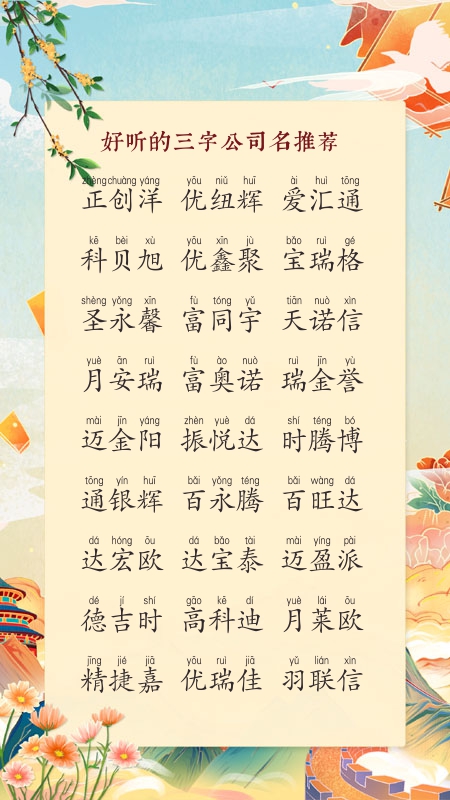 好听的三字公司名推荐
zhèng chuàng yáng yōu niǔ huī ài huì tōng
正创洋 优纽辉 爱汇通
kē bèi xù yōu xīn jù bǎo ruì gé
科贝旭 优鑫聚 宝瑞格
shèng yǒng xīn fù tóng yǔ tiān nuò xìn
圣永馨 富同宇 天诺信
yuè ān ruì fù ào nuò ruì jīn yù
月安瑞 富奥诺 瑞金誉
mài jīn yáng zhèn yuè dá shí téng bó
迈金阳 振悦达 时腾博
tōng yín huī bǎi yǒng téng bǎi wàng dá
通银辉 百永腾 百旺达
dá hóng ōu dá bǎo tài mài yíng pài
达宏欧 达宝泰 迈盈派
dé jí shí gāo kē dí yuè lái ōu
德吉时 高科迪 月莱欧
jīng jié jiā yōu ruì jiā yǔ lián xìn
精捷嘉 优瑞佳 羽联信